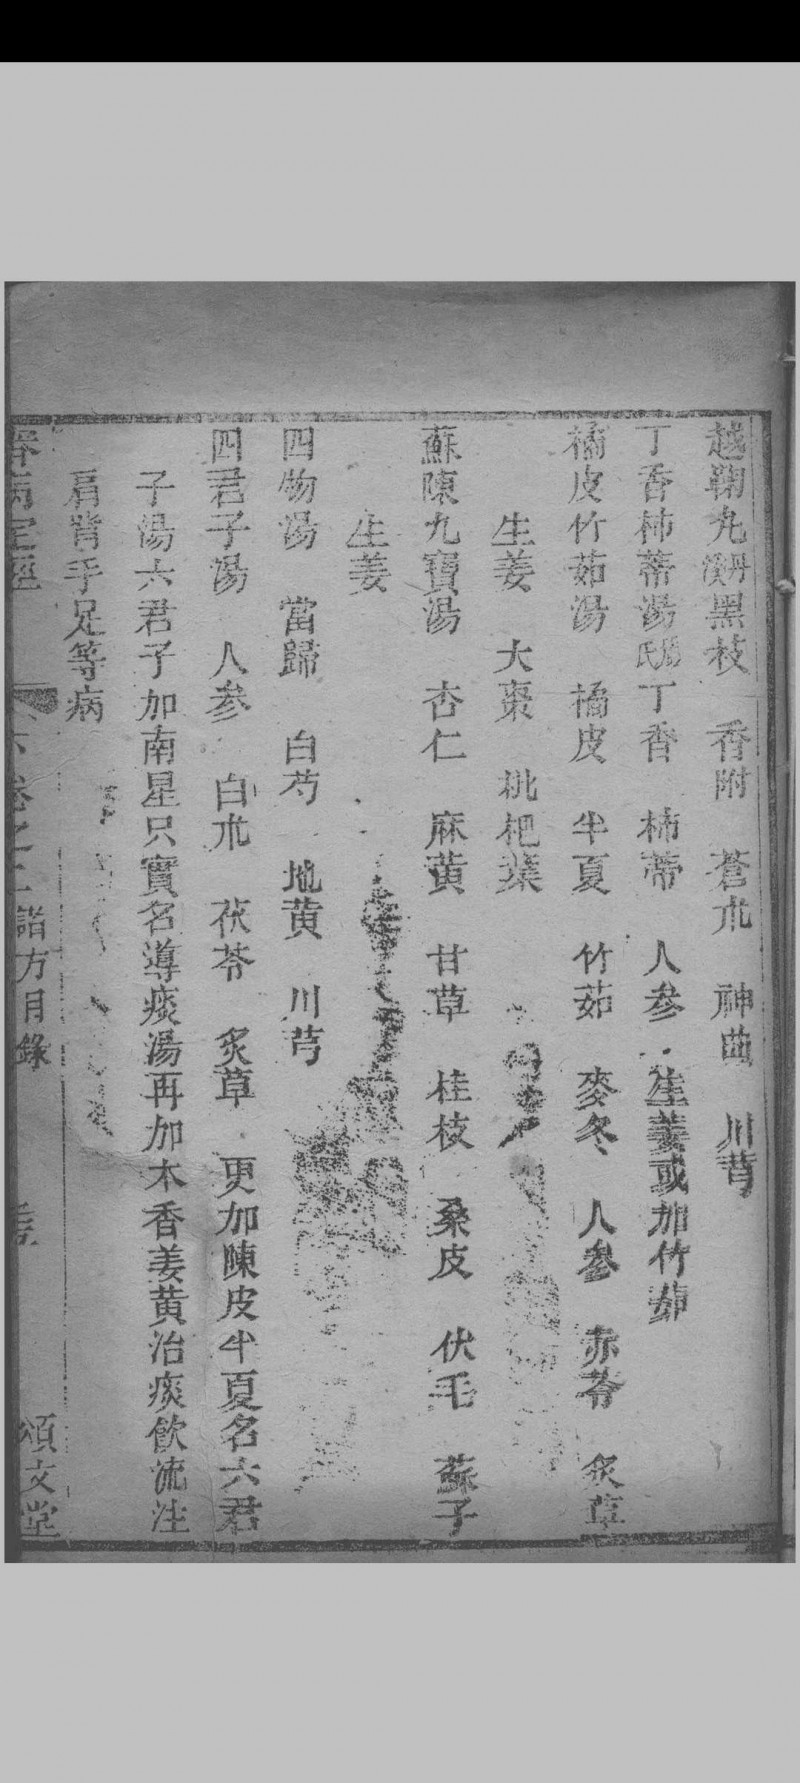 越鞠丸丹溪黑枝　香附　蒼朮　神曲　川芎
丁香柿蒂湯嚴氏丁香　柿蒂　人參　生姜或加竹茹
橘皮竹茹湯　橘皮　半夏　竹茹　麥冬　人參　赤苓　炙草
生姜　大棗　枇杷葉
蘇陳九寶湯　杏仁　麻黄　甘草　桂枝　桑皮　伏毛　蘇子
生姜
四物湯　當歸　白芍　地黄　川芎
四君子湯　人參　白朮　茯苓　炙草　更加陳皮半夏名六君
子湯六君子加南星只實名導痰湯再加木香姜黄治痰飲流注
肩背手足等病
卷之二 諸方目錄 頌文堂